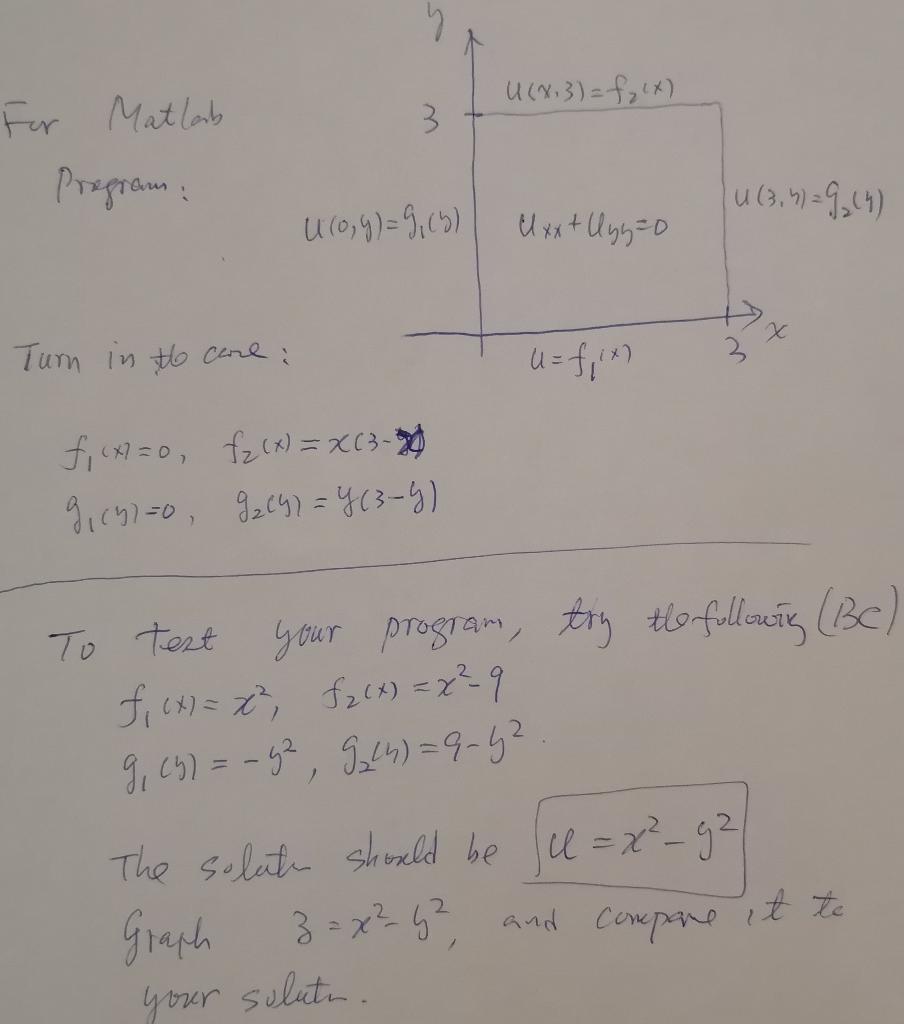 y
For Matlab
Program:
3
u(x,3)=f₂(x)
u(0,y)=g₁(y)
uxx+uyy=0
u(3,y)=g₂(y)
x
3
u=f₁(x)
Turn in the case:
f₁(x)=0, f₂(x)=x(3-x)
g₁(y)=0, g₂(y)=y(3-y)
To test your program, try the following (BC)
f₁(x)=x², f₂(x)=x²-9
g₁(y)=-y², g₂(y)=9-y².
The solutn should be u=x²-y²
Graph z=x²-y², and compare it to
your solutn.